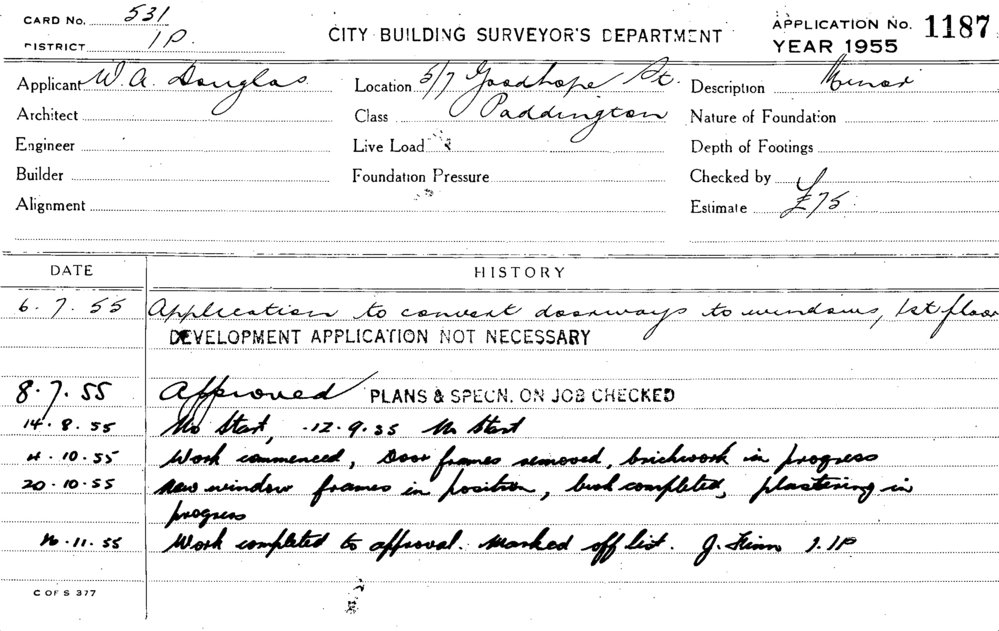 CARD No. 531
DISTRICT 1P.
CITY BUILDING SURVEYOR'S DEPARTMENT
APPLICATION No. 1187
YEAR 1955
Applicant W. A. Douglas
Location 5/7 Goodhope St.
Description Minor
Architect
Class Paddington
Nature of Foundation
Engineer
Live Load
Depth of Footings
Builder
Foundation Pressure
Checked by
Alignment
Estimate £75
DATE HISTORY
6.7.55 Application to convert doorways to windows, 1st floor
DEVELOPMENT APPLICATION NOT NECESSARY
8.7.55 Approved PLANS & SPECN. ON JOB CHECKED
14.8.55 No Start, 12.9.55 No Start
4.10.55 Work commenced, Door frames removed, brickwork in progress
20.10.55 New window frames in position, completed, plastering in
progress
16.11.55 Work completed to approval. Marked off list. J. 1P
C OF S 377